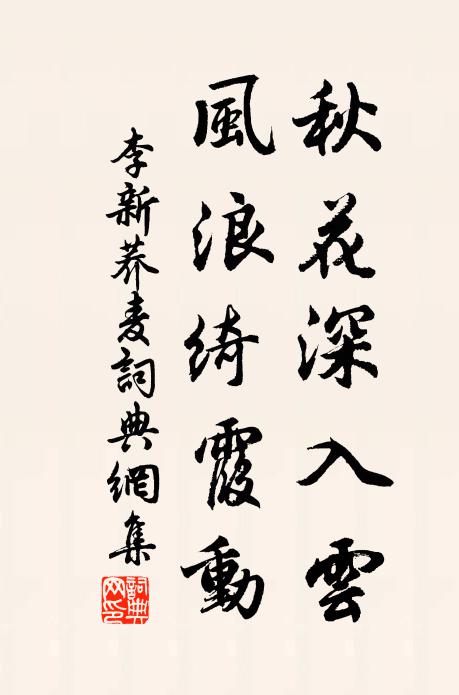 秋花深入雲
風浪綺霞動
李新蕎麦詞典網集
詞典網印